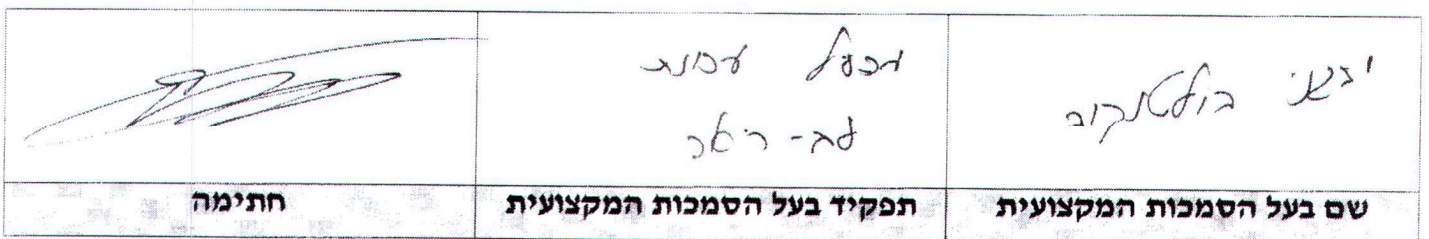 יבגני בולטנקוב
מפעל
שם בעל הסמכות המקצועית
תפקיד בעל הסמכות המקצועית
חתימה